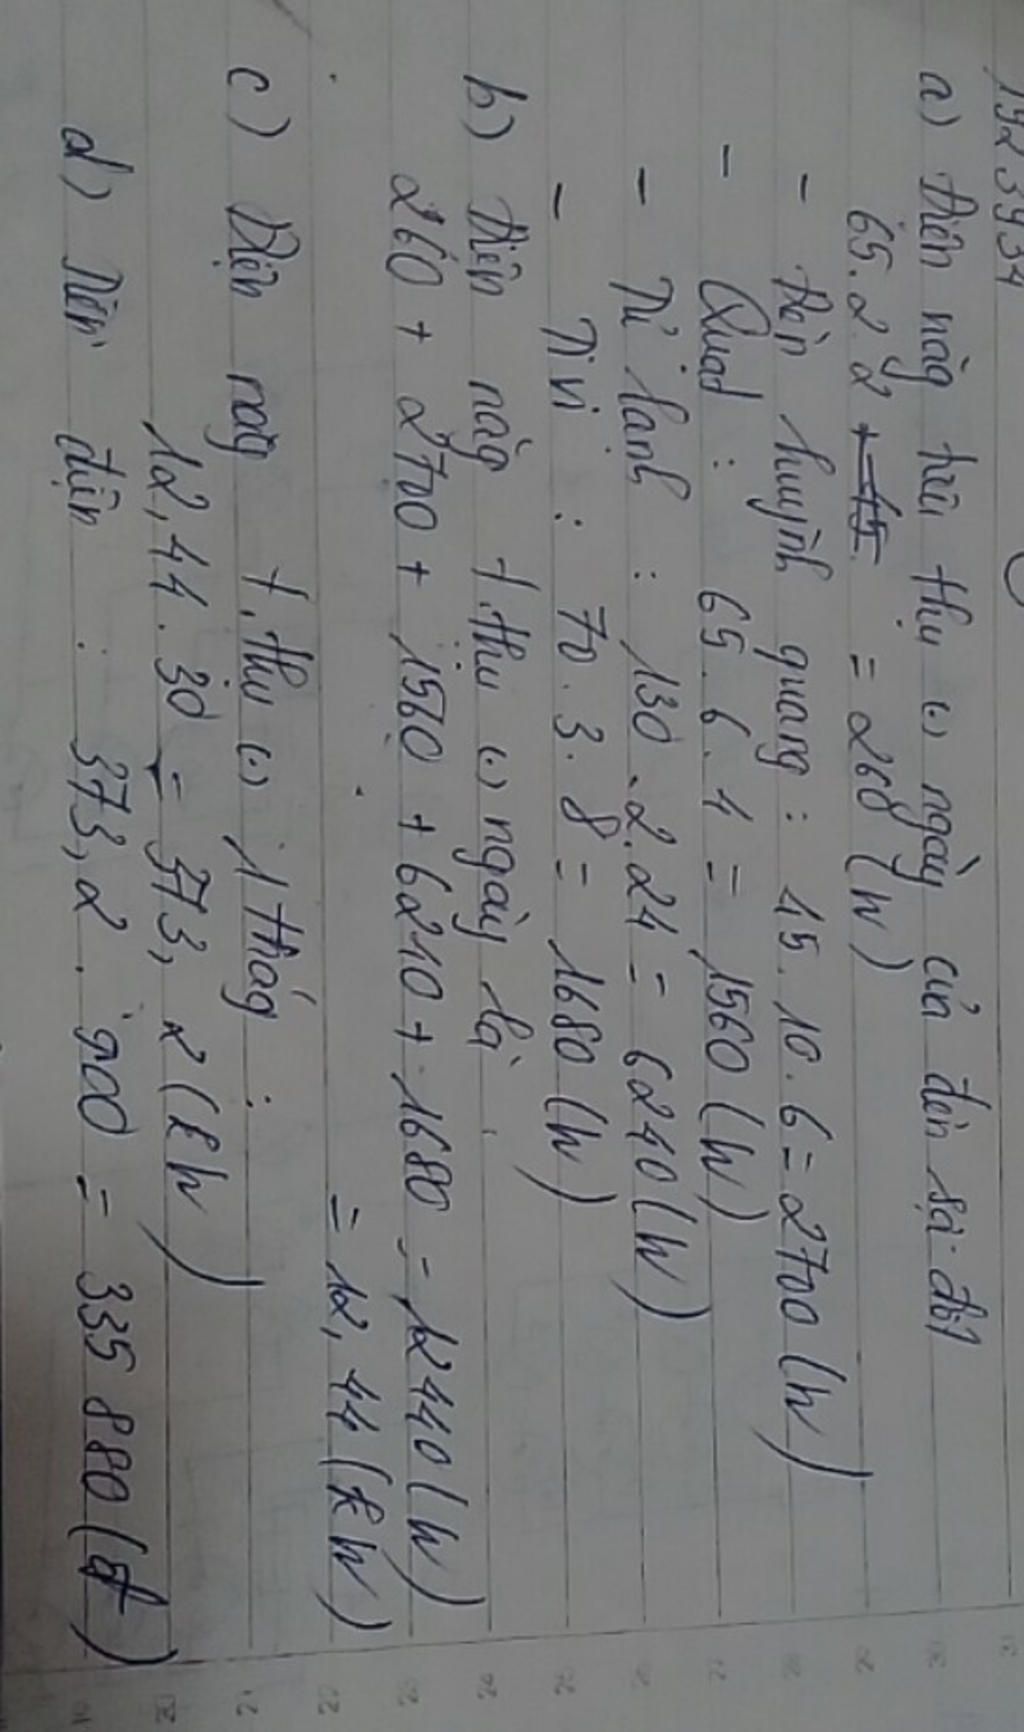 1923934
a) Điện năg tiêu thụ (.) ngày của đèn sợi đốt
65.2.2 = 260 (W)
- Đèn huỳnh quang : 45.10.6 = 2700 (W)
- Quạt : 65.6.4 = 1560 (W)
- Tủ lạnh : 130.2.24 = 6240 (W)
- Ti vi : 70.3.8 = 1680 (W)
b) Điện năg t.thụ (.) ngày là
260 + 2700 + 1560 + 6240 + 1680 = 12440 (W)
= 12,44 (kW)
c) Điện năg t.thụ (.) 1 thág :
12,44.30 = 373,2 (kW)
d) Tiền điện : 373,2.900 = 335 880 (đ)